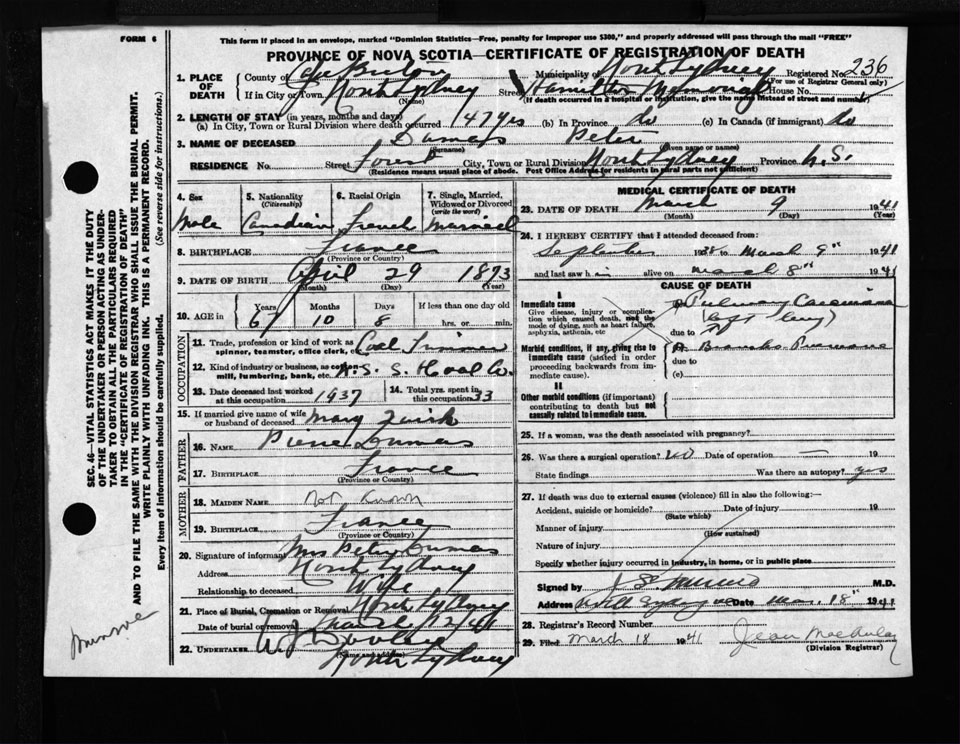 FORM 6
This form if placed in an envelope, marked "Dominion Statistics—Free, penalty for improper use $300," and properly addressed will pass through the mail "FREE"
PROVINCE OF NOVA SCOTIA—CERTIFICATE OF REGISTRATION OF DEATH
1. PLACE OF DEATH County of Cape Breton Municipality of North Sydney Registered No. 236
(For use of Registrar General only)
If in City or Town, North Sydney Street Hamilton Memorial House No.
(Name) (If death occurred in a hospital or institution, give the name instead of street and number)
2. LENGTH OF STAY (in years, months and days)
(a) In City, Town or Rural Division where death occurred 47 yrs (b) In Province do (c) In Canada (if immigrant) do
3. NAME OF DECEASED Dumas Peter
(Surname) (Given name or names)
RESIDENCE No. Street Forest City, Town or Rural Division North Sydney Province N.S.
(Residence means usual place of abode. Post Office Address for residents in rural parts not sufficient)
4. Sex 5. Nationality (Citizenship) 6. Racial Origin 7. Single, Married, Widowed or Divorced (write the word)
Male Canadian French Married
8. BIRTHPLACE France
(Province or Country)
9. DATE OF BIRTH April 29 1873
(Month) (Day) (Year)
10. AGE in Years Months Days If less than one day old
67 10 8 hrs. or min.
OCCUPATION
11. Trade, profession or kind of work as spinner, teamster, office clerk, etc. Coal Trimmer
12. Kind of industry or business, as cotton-mill, lumbering, bank, etc. N.S.S. & Coal Co.
13. Date deceased last worked at this occupation 1937 14. Total yrs. spent in this occupation 33
15. If married give name of wife or husband of deceased Mary
FATHER
16. NAME Pierre Dumas
17. BIRTHPLACE France
(Province or Country)
MOTHER
18. MAIDEN NAME Not Known
19. BIRTHPLACE France
(Province or Country)
20. Signature of informant Mrs Peter Dumas
Address North Sydney
Relationship to deceased Wife
21. Place of Burial, Cremation or Removal North Sydney
Date of burial or removal March 12/41
22. UNDERTAKER
(Name and address)
North Sydney
MEDICAL CERTIFICATE OF DEATH
23. DATE OF DEATH March 9 1941
(Month) (Day) (Year)
24. I HEREBY CERTIFY that I attended deceased from:
September 1938 to March 9th 1941
and last saw him alive on March 8th 1941
CAUSE OF DEATH
I
Immediate cause
Give disease, injury or complication which caused death, not the mode of dying, such as heart failure, asphyxia, asthenia, etc
(left lung)
due to
Morbid conditions, if any, giving rise to immediate cause (stated in order proceeding backwards from immediate cause).
Broncho Pneumonia
due to
(c)
II
Other morbid conditions (if important) contributing to death but not causally related to immediate cause.
25. If a woman, was the death associated with pregnancy?
26. Was there a surgical operation? no Date of operation —
State findings Was there an autopsy? yes
27. If death was due to external causes (violence) fill in also the following:—
Accident, suicide or homicide? Date of injury 19
(State which)
Manner of injury
(How sustained)
Nature of injury
Specify whether injury occurred in industry, in home, or in public place
Signed by M.D.
Address Date Mar. 18th 1941
28. Registrar's Record Number
29. Filed March 18 1941 Jean MacAulay
(Division Registrar)
SEC. 46—VITAL STATISTICS ACT MAKES IT THE DUTY
OF THE UNDERTAKER OR PERSON ACTING AS UNDER-
TAKER TO OBTAIN ALL THE PARTICULARS REQUIRED
IN THE "CERTIFICATE OF REGISTRATION OF DEATH"
AND TO FILE THE SAME WITH THE DIVISION REGISTRAR WHO SHALL ISSUE THE BURIAL PERMIT.
WRITE PLAINLY WITH UNFADING INK. THIS IS A PERMANENT RECORD.
Every item of information should be carefully supplied. (See reverse side for instructions.)